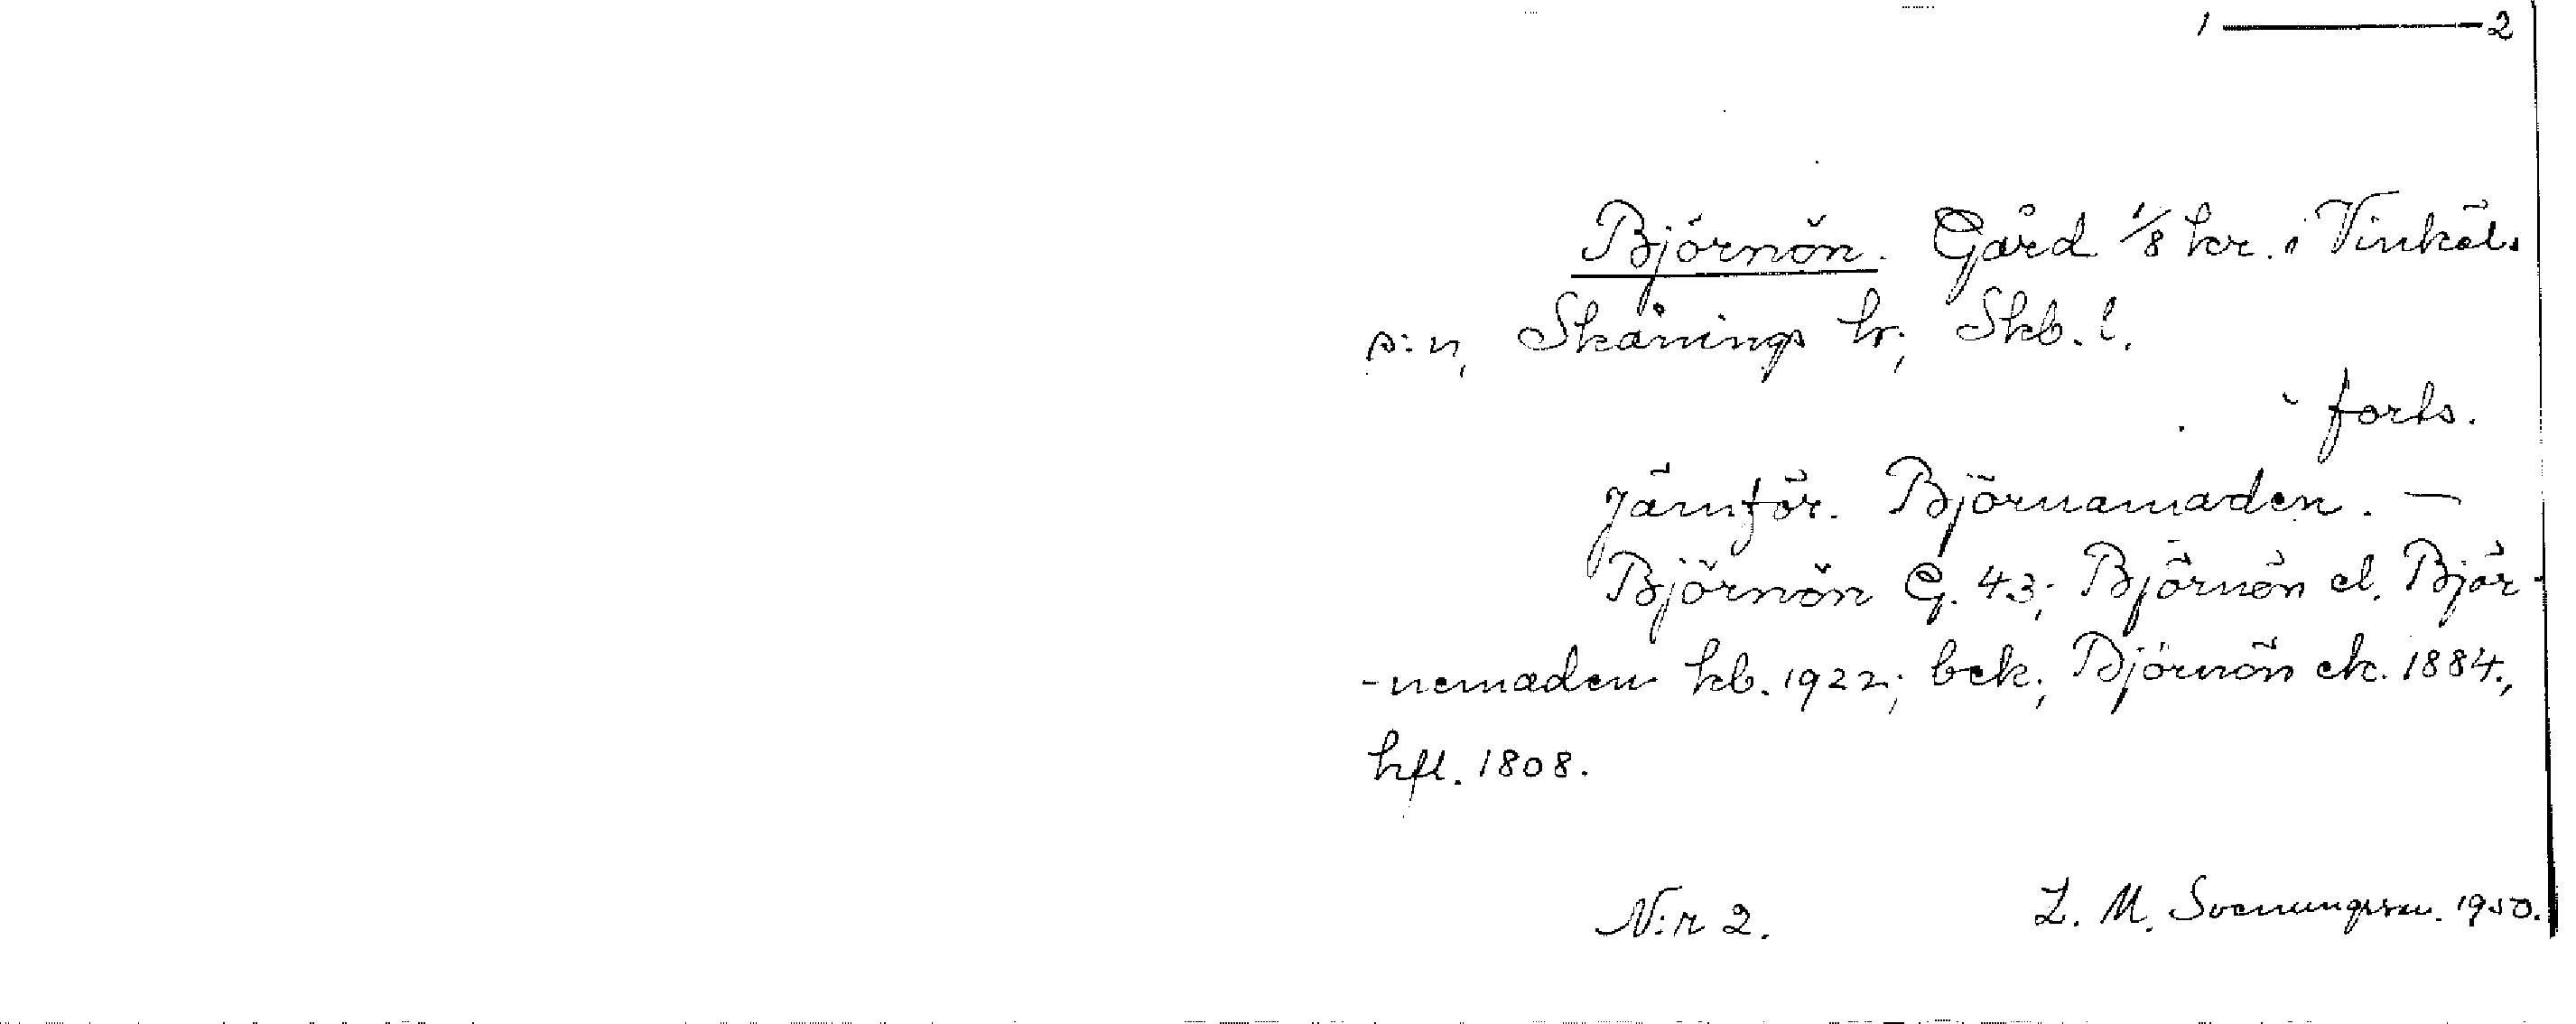 1 — 2
Björnön. Gård 1/8 kr. i Vinköls
s:n, Skånings hr; Skb. l.
forts.
Jämför. Björnamaden. —
Björnön G. 43; Björnön el. Björ-
-nemaden kb. 1922; bek; Björnön ek. 1884.,
hfl. 1808.
N:r 2. L. M. Svenungsson. 1950.